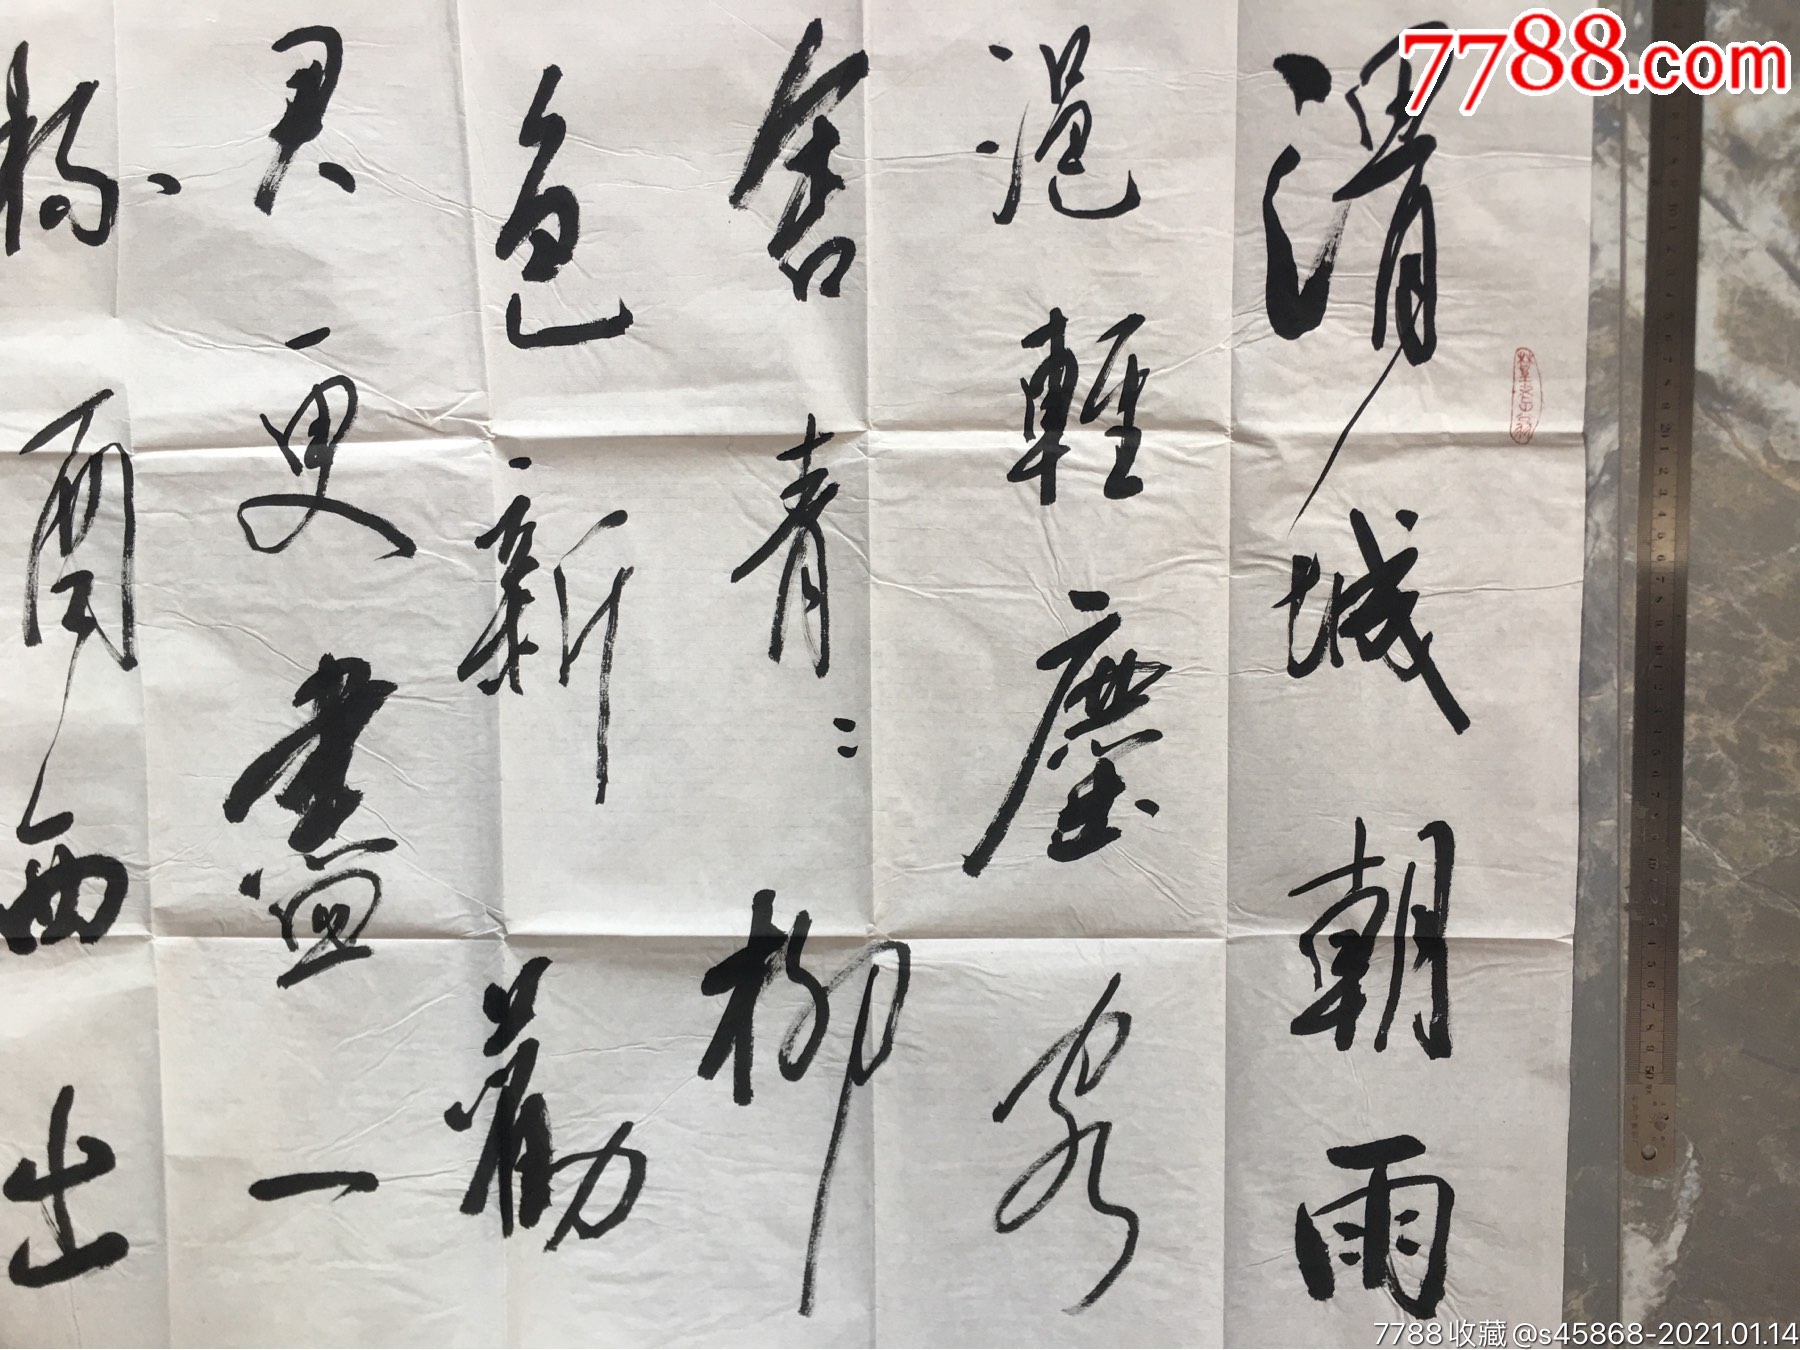 7788.com
渭城朝雨
浥輕塵客
舍青〻柳
色新勸
君更盡一
杯酒西出
7788收藏@s45868-2021.01.14